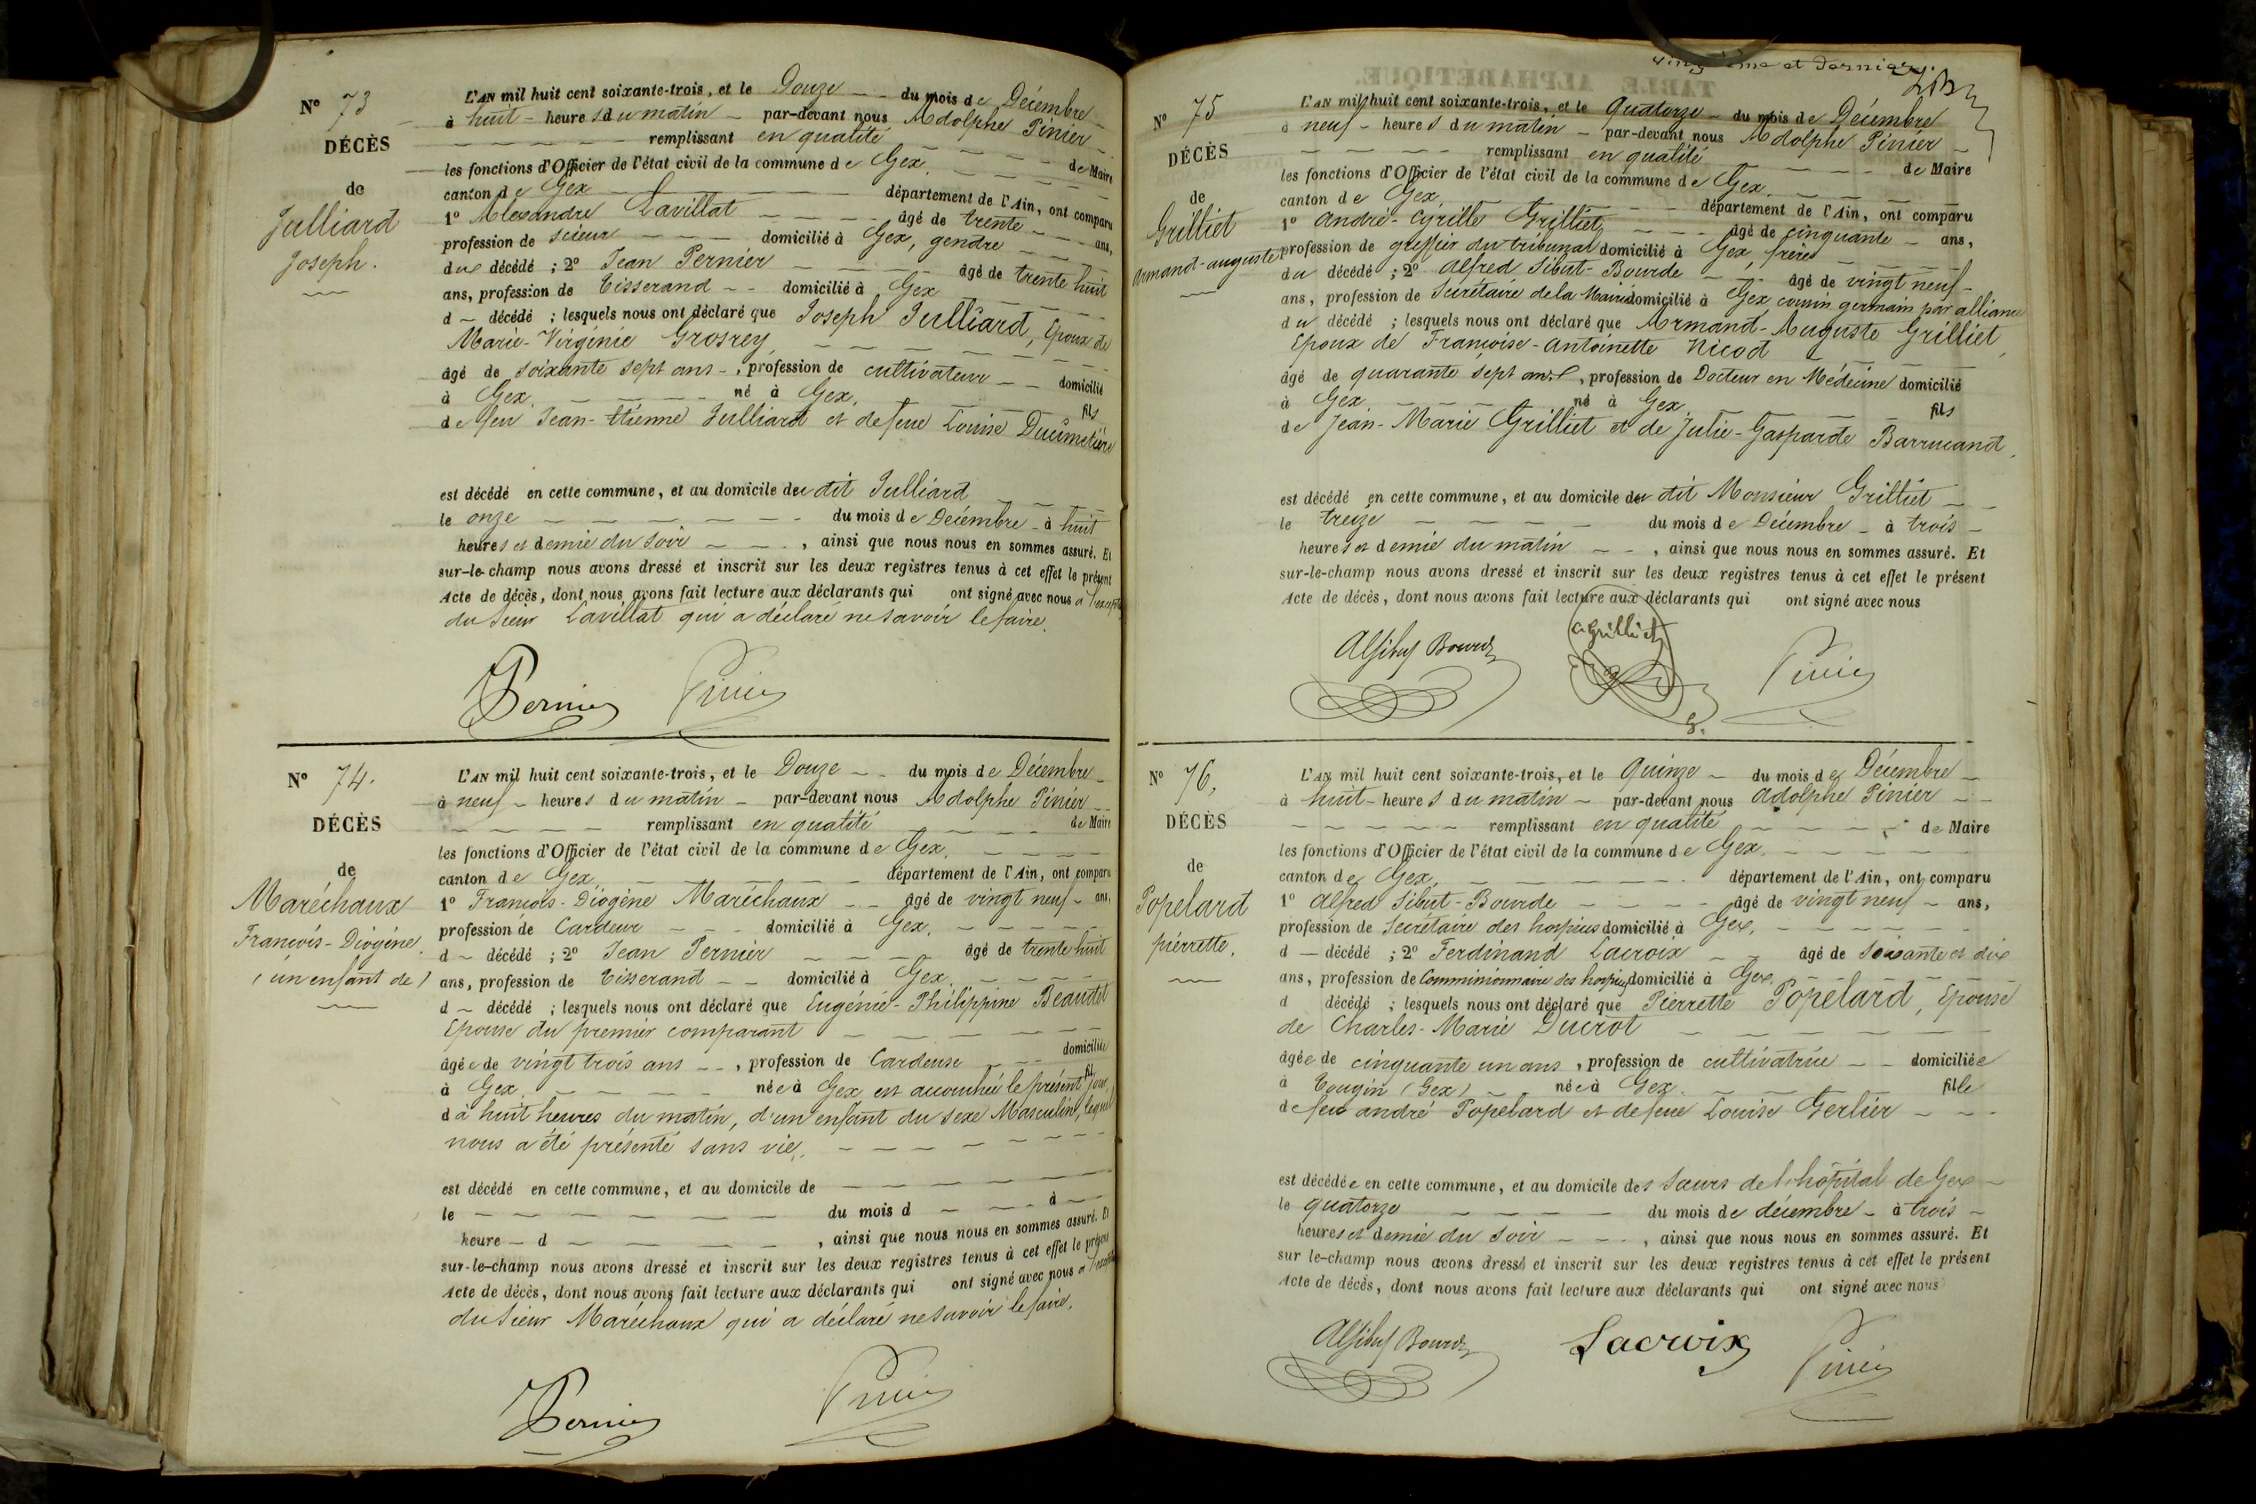 N° 73
DÉCÈS
de
Julliard
Joseph.
L'AN mil huit cent soixante-trois, et le Douze du mois de Décembre
à huit heures du matin par-devant nous Adolphe Pinier
remplissant en qualité de Maire
les fonctions d'Officier de l'état civil de la commune de Gex.
canton de Gex département de l'Ain, ont comparu
1° Alexandre Lavillat âgé de trente ans,
profession de scieur domicilié à Gex, gendre
du décédé ; 2° Jean Pernier âgé de trente huit
ans, profession de Tisserand domicilié à Gex
d décédé ; lesquels nous ont déclaré que Joseph Julliard, Epoux de
Marie-Virginie Grosrey,
âgé de soixante sept ans, profession de cultivateur domicilié
à Gex. né à Gex. fils
de feu Jean-Etienne Julliard et de feue Louise Ducimetière
est décédé en cette commune, et au domicile du dit Julliard
le onze du mois de Décembre à huit
heures et demie du soir, ainsi que nous nous en sommes assuré. Et
sur-le-champ nous avons dressé et inscrit sur les deux registres tenus à cet effet le présent
Acte de décès, dont nous avons fait lecture aux déclarants qui ont signé avec nous à l'exception
du sieur Lavillat qui a déclaré ne savoir le faire.
Pernier Pinier
N° 74.
DÉCÈS
de
Maréchaux
François-Diogène.
(un enfant de)
L'AN mil huit cent soixante-trois, et le Douze du mois de Décembre
à neuf heures du matin par-devant nous Adolphe Pinier
remplissant en qualité de Maire
les fonctions d'Officier de l'état civil de la commune de Gex.
canton de Gex département de l'Ain, ont comparu
1° François-Diogène Maréchaux âgé de vingt neuf ans,
profession de Cardeur domicilié à Gex.
d décédé ; 2° Jean Pernier âgé de trente huit
ans, profession de Tisserand domicilié à Gex.
d décédé ; lesquels nous ont déclaré que Eugénie-Philippine Beaudet
Epouse du premier comparant
âgée de vingt trois ans, profession de Cardeuse domiciliée
à Gex. née à Gex est accouchée le présent jour fil
d à huit heures du matin, d'un enfant du sexe Masculin, lequel
nous a été présenté sans vie.
est décédé en cette commune, et au domicile de
le du mois d à
heure d , ainsi que nous nous en sommes assuré. Et
sur-le-champ nous avons dressé et inscrit sur les deux registres tenus à cet effet le présent
Acte de décès, dont nous avons fait lecture aux déclarants qui ont signé avec nous à l'exception
du sieur Maréchaux qui a déclaré ne savoir le faire.
Pernier Pinier
TABLE ALPHABÉTIQUE.
et dernier.
N° 75
DÉCÈS
de
Grilliet
Armand-auguste
L'AN mil huit cent soixante-trois, et le Quatorze du mois de Décembre
à neuf heures du matin par-devant nous Adolphe Pinier
remplissant en qualité de Maire
les fonctions d'Officier de l'état civil de la commune de Gex.
canton de Gex. département de l'Ain, ont comparu
1° André-Cyrille Grilliet, âgé de cinquante ans,
profession de greffier du tribunal domicilié à Gex, frère
du décédé ; 2° Alfred Sibut-Bourde âgé de vingt neuf
ans, profession de Secrétaire de la Mairie domicilié à Gex cousin germain par alliance
du décédé ; lesquels nous ont déclaré que Armand-Auguste Grilliet,
Epoux de Françoise-Antoinette Nicod
âgé de quarante sept ans, profession de Docteur en Médecine domicilié
à Gex né à Gex fils
de Jean-Marie Grilliet et de Julie-Gasparde Barrucand.
est décédé en cette commune, et au domicile du dit Monsieur Grilliet
le treize du mois de Décembre à trois
heures et demie du matin, ainsi que nous nous en sommes assuré. Et
sur-le-champ nous avons dressé et inscrit sur les deux registres tenus à cet effet le présent
Acte de décès, dont nous avons fait lecture aux déclarants qui ont signé avec nous
Alf Sibut Bourde aGrilliet Pinier
N° 76,
DÉCÈS
de
Popelard
pierrette.
L'AN mil huit cent soixante-trois, et le Quinze du mois de Décembre
à huit heures du matin par-devant nous Adolphe Pinier
remplissant en qualité de Maire
les fonctions d'Officier de l'état civil de la commune de Gex.
canton de Gex. département de l'Ain, ont comparu
1° Alfred Sibut-Bourde âgé de vingt neuf ans,
profession de Secrétaire des hospices domicilié à Gex.
d décédé ; 2° Ferdinand Lacroix âgé de soixante et dix
ans, profession de Commissionnaire des hospices domicilié à Gex.
d décédé ; lesquels nous ont déclaré que Pierrette Popelard, Epouse
de Charles-Marie Ducrot
âgée de cinquante un ans, profession de cultivatrice domiciliée
à Tougin (Gex) née à Gex. fille
de feu andré Popelard et de feue Louise Gerlier
est décédée en cette commune, et au domicile des sœurs de l'hôpital de Gex
le quatorze du mois de décembre à trois
heures et demie du soir, ainsi que nous nous en sommes assuré. Et
sur le-champ nous avons dressé et inscrit sur les deux registres tenus à cet effet le présent
Acte de décès, dont nous avons fait lecture aux déclarants qui ont signé avec nous
Alf Sibut Bourde Lacroix Pinier